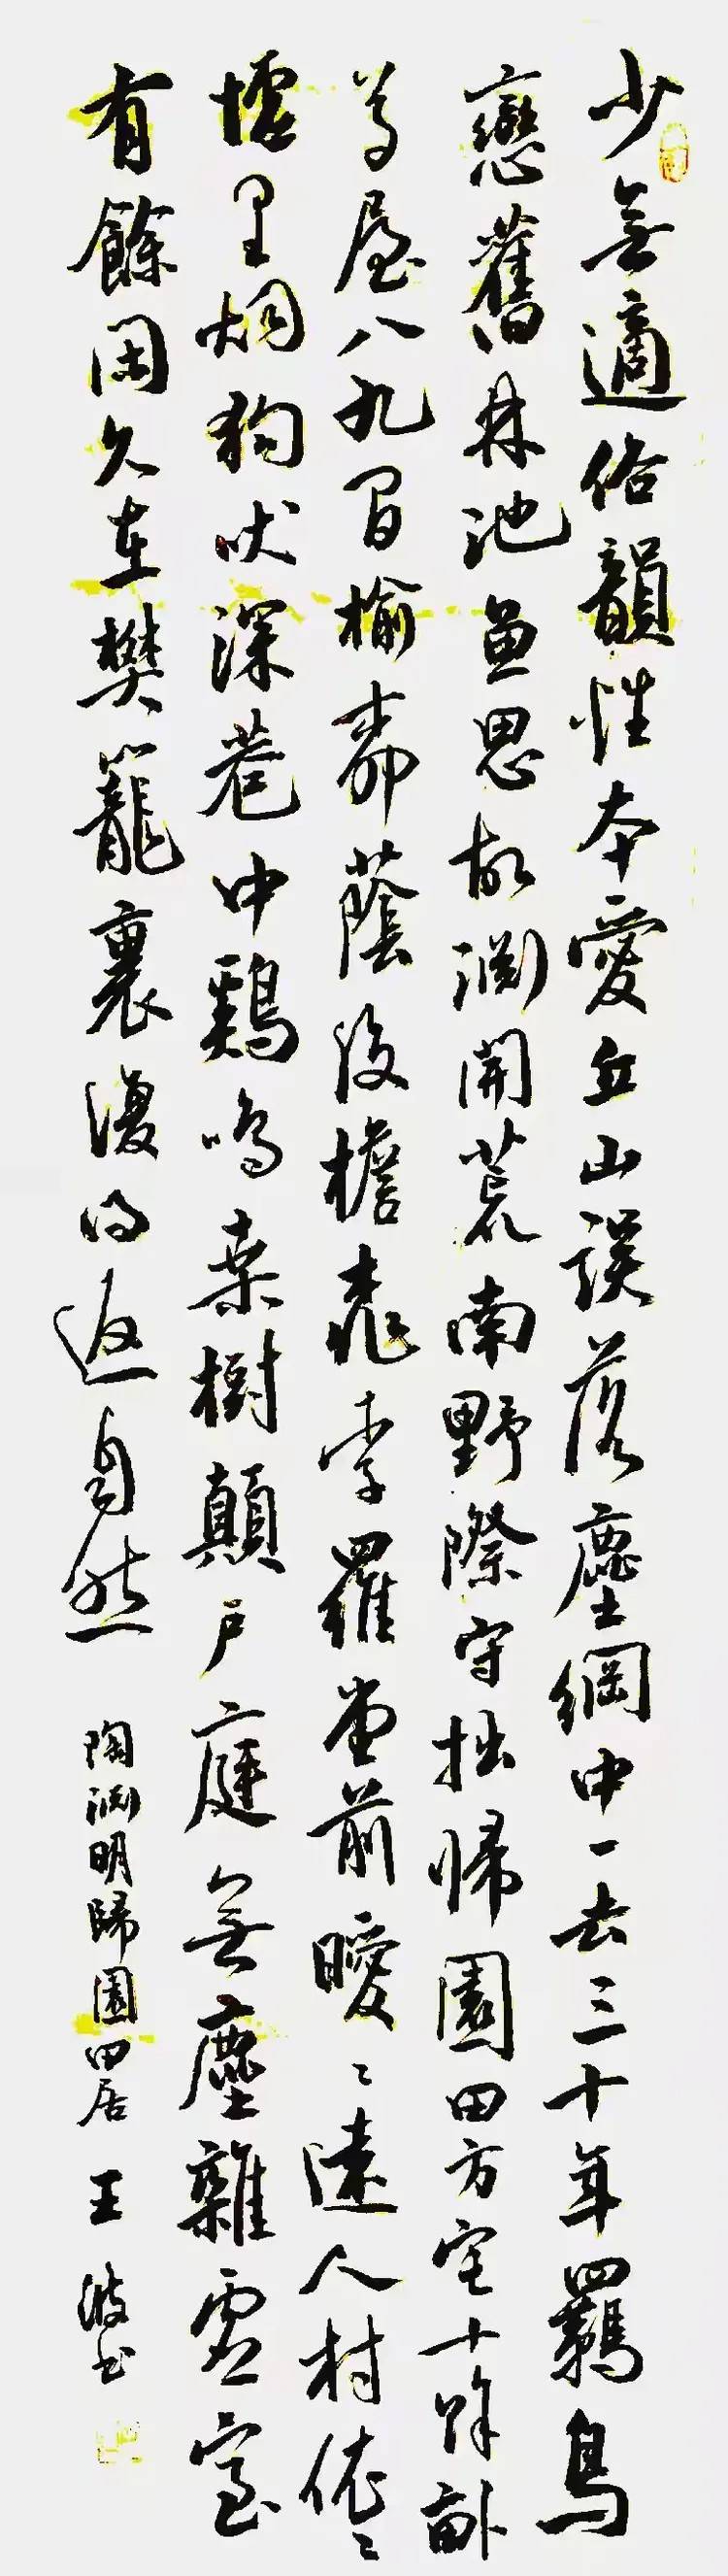 少無適俗韻性本愛丘山誤落塵網中一去三十年羈鳥
戀舊林池魚思故淵開荒南野際守拙歸園田方宅十餘畝
草屋八九間榆柳蔭後檐桃李羅堂前曖〻遠人村依〻
墟里烟狗吠深巷中鷄鳴桑樹顛户庭無塵雜虛室
有餘閑久在樊籠裏復得返自然
陶淵明歸園田居 王波书